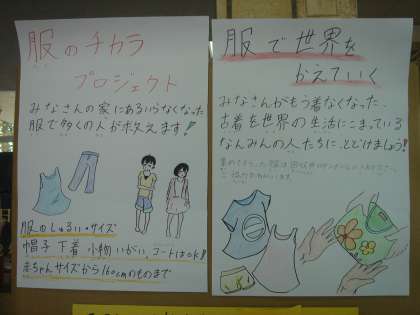 服のチカラ
プロジェクト
みなさんの家にあるいらなくなった
服で多くの人が救えます!
服のしゅるい・サイズ
帽子 下着 小物いがい、コートはOK!
赤ちゃんサイズから160cmのものまで
服で世界を
かえていく
みなさんがもう着なくなった、
古着を世界の生活にこまっている
なんみんの人たちに、とどけましょう!